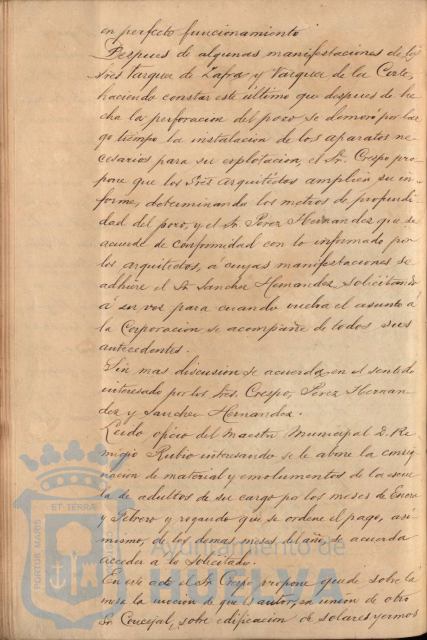 en perfecto funcionamiento
Despues de algunas manifestaciones de los
Sres Vazquez de Zafra y Vazquez de la Corte,
haciendo constar este último que despues de he
cha la perforacion del pozo se demoró por lar
go tiempo la instalacion de los aparatos ne
cesarios para su explotacion, el Sr. Crespo pro
pone que los Sres Arquitectos amplien su in-
forme, determinando los metros de profundi
dad del pozo, y el Sr. Perez Hernandez que se
acuerde de conformidad con lo informado por
los arquitectos, á cuyas manifestaciones se
adhiere el Sr. Sanchez Hernandez solicitando
á su vez para cuando vuelva el asunto á
la Corporacion se acompañe de todos sus
antecedentes.
Sin mas discusion se acuerda en el sentido
interesado por los Sres. Crespo, Perez Hernan
dez y Sanchez Hernandez.
Leido oficio del Maestro Municipal D. Re
migio Rubio interesando se le abone la consig
nacion de material y emolumentos de la escue
la de adultos de su cargo por los meses de Enero
y Febrero y rogando que se ordene el pago, asi
mismo, de los demas meses del año, se acuerda
acceder á lo solicitado.
En este acto el Sr. Crespo propone quede sobre la
mesa la mocion de que es autor, en union de otro
Sr. Concejal, sobre edificacion de solares yermos
PORTUS MARIS
ET TERRAE
Ayuntamiento de
HUELVA